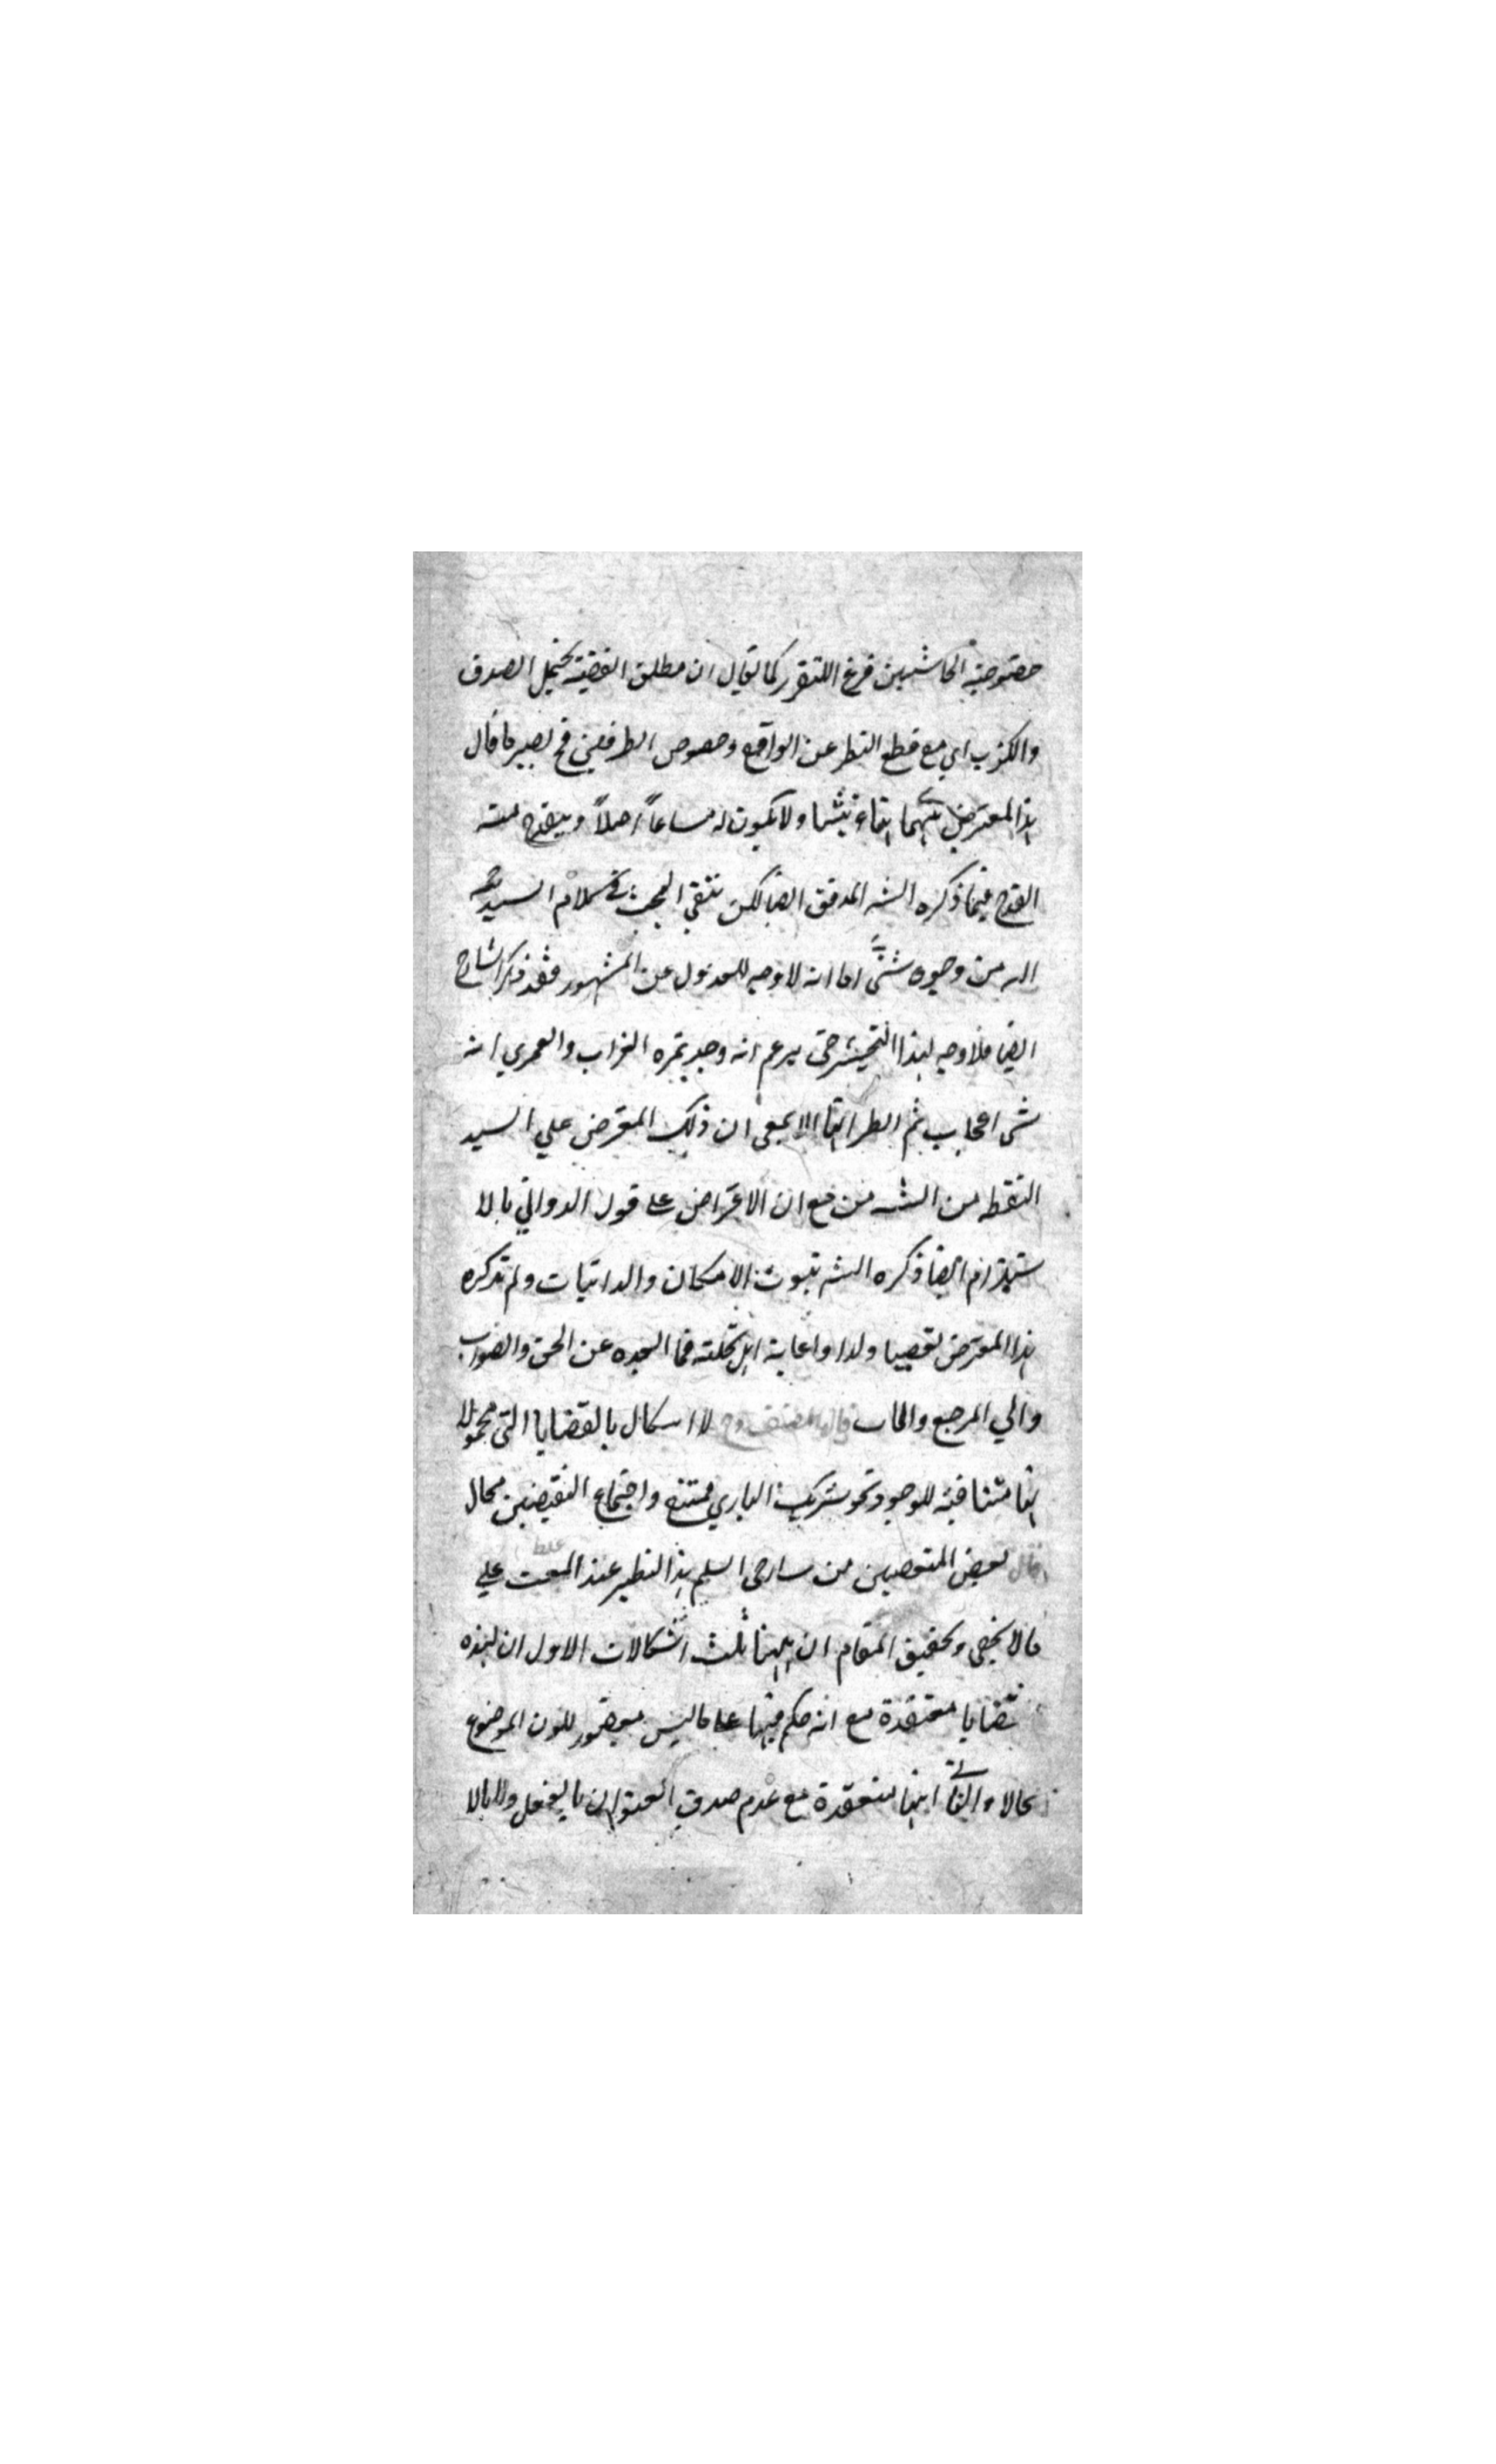 خصوصية الحاشيتين فرع التقرر كما يقال ان مطلق القضية يحتمل الصدق
والكذب اي مع قطع النظر عن الواقع وخصوص الطرفين فح يصير ما قال
هذا المعترض هباء ولا يكون له مساغا اصلا وينقدح منه
القدح فيما ذكره الشه المدقق ايضا لكن بقي العجب في كلام السيد
اله من وجوه شتى اما انه لا وجه للعدول عن المشهور فقد ذكر الشارح
ايضا فلا وجه لهذا حتى يزعم انه وجد تمرة الغراب والعمري انه
شى اعجاب ثم انظر ان ذلك المعترض علي السيد
التقطه من الشه من مع ان الاعتراض على قول الدواني بالا
ستلزام ايضا ذكره الشه ثبوت الامكان والذاتيات ولم تذكره
هذا المعترض تعصبا ولدا واعانة اهل نحلته فما ابعده عن الحق والصواب
والي المرجع والماب قال المصنف وح لا اشكال بالقضايا التي محمولا
تها منافية للوجود نحو شريك الباري ممتنع واجتماع النقيضين محال
قال بعض المتعصبين من شارحى السلم هذا النظير عند المصنف غلط علي
ما لا يخفى وتحقيق المقام ان ههنا ثلث اشكالات الاول ان هذه
قضايا منعقدة مع انه حكم فيها على ما ليس بمتصور لكون الموضوع
محالا والثاني انها منعقدة مع عدم صدق العنوان بالفعل ولا بالا